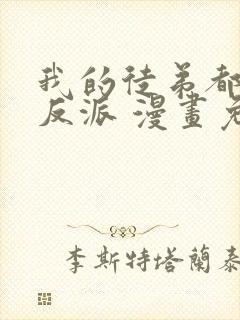 我的徒弟都
反派 漫畫
李斯特塔蘭泰